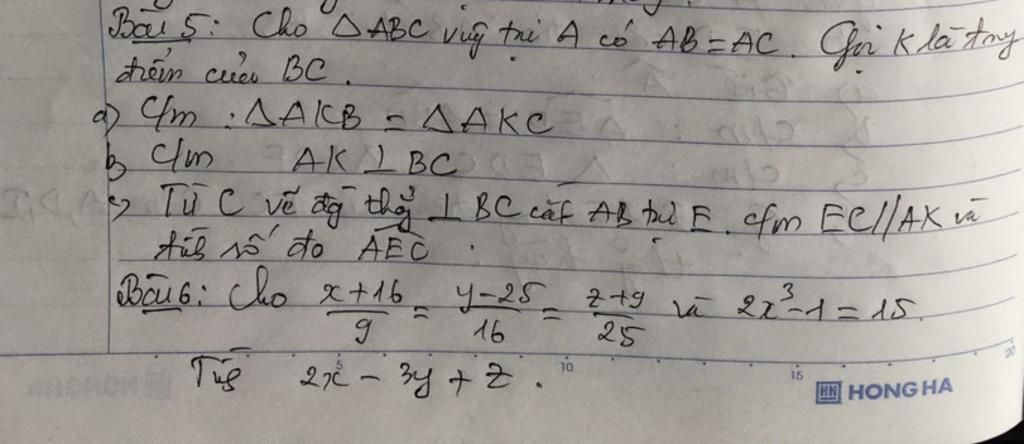 Bài 5: Cho △ABC vug tại A có AB = AC. Gọi K là trug
điểm của BC.
a) C/m : △AKB = △AKC
b) C/m AK ⊥ BC
c) Từ C vẽ đg thẳg ⊥ BC cắt AB tại E. C/m EC // AK và
tính số đo AEC
Bài 6: Cho (x+16)/9 = (y-25)/16 = (z+9)/25 và 2x³-1 = 15.
Tíh 2x - 3y + z.
5 10 15 20
HH HONG HA